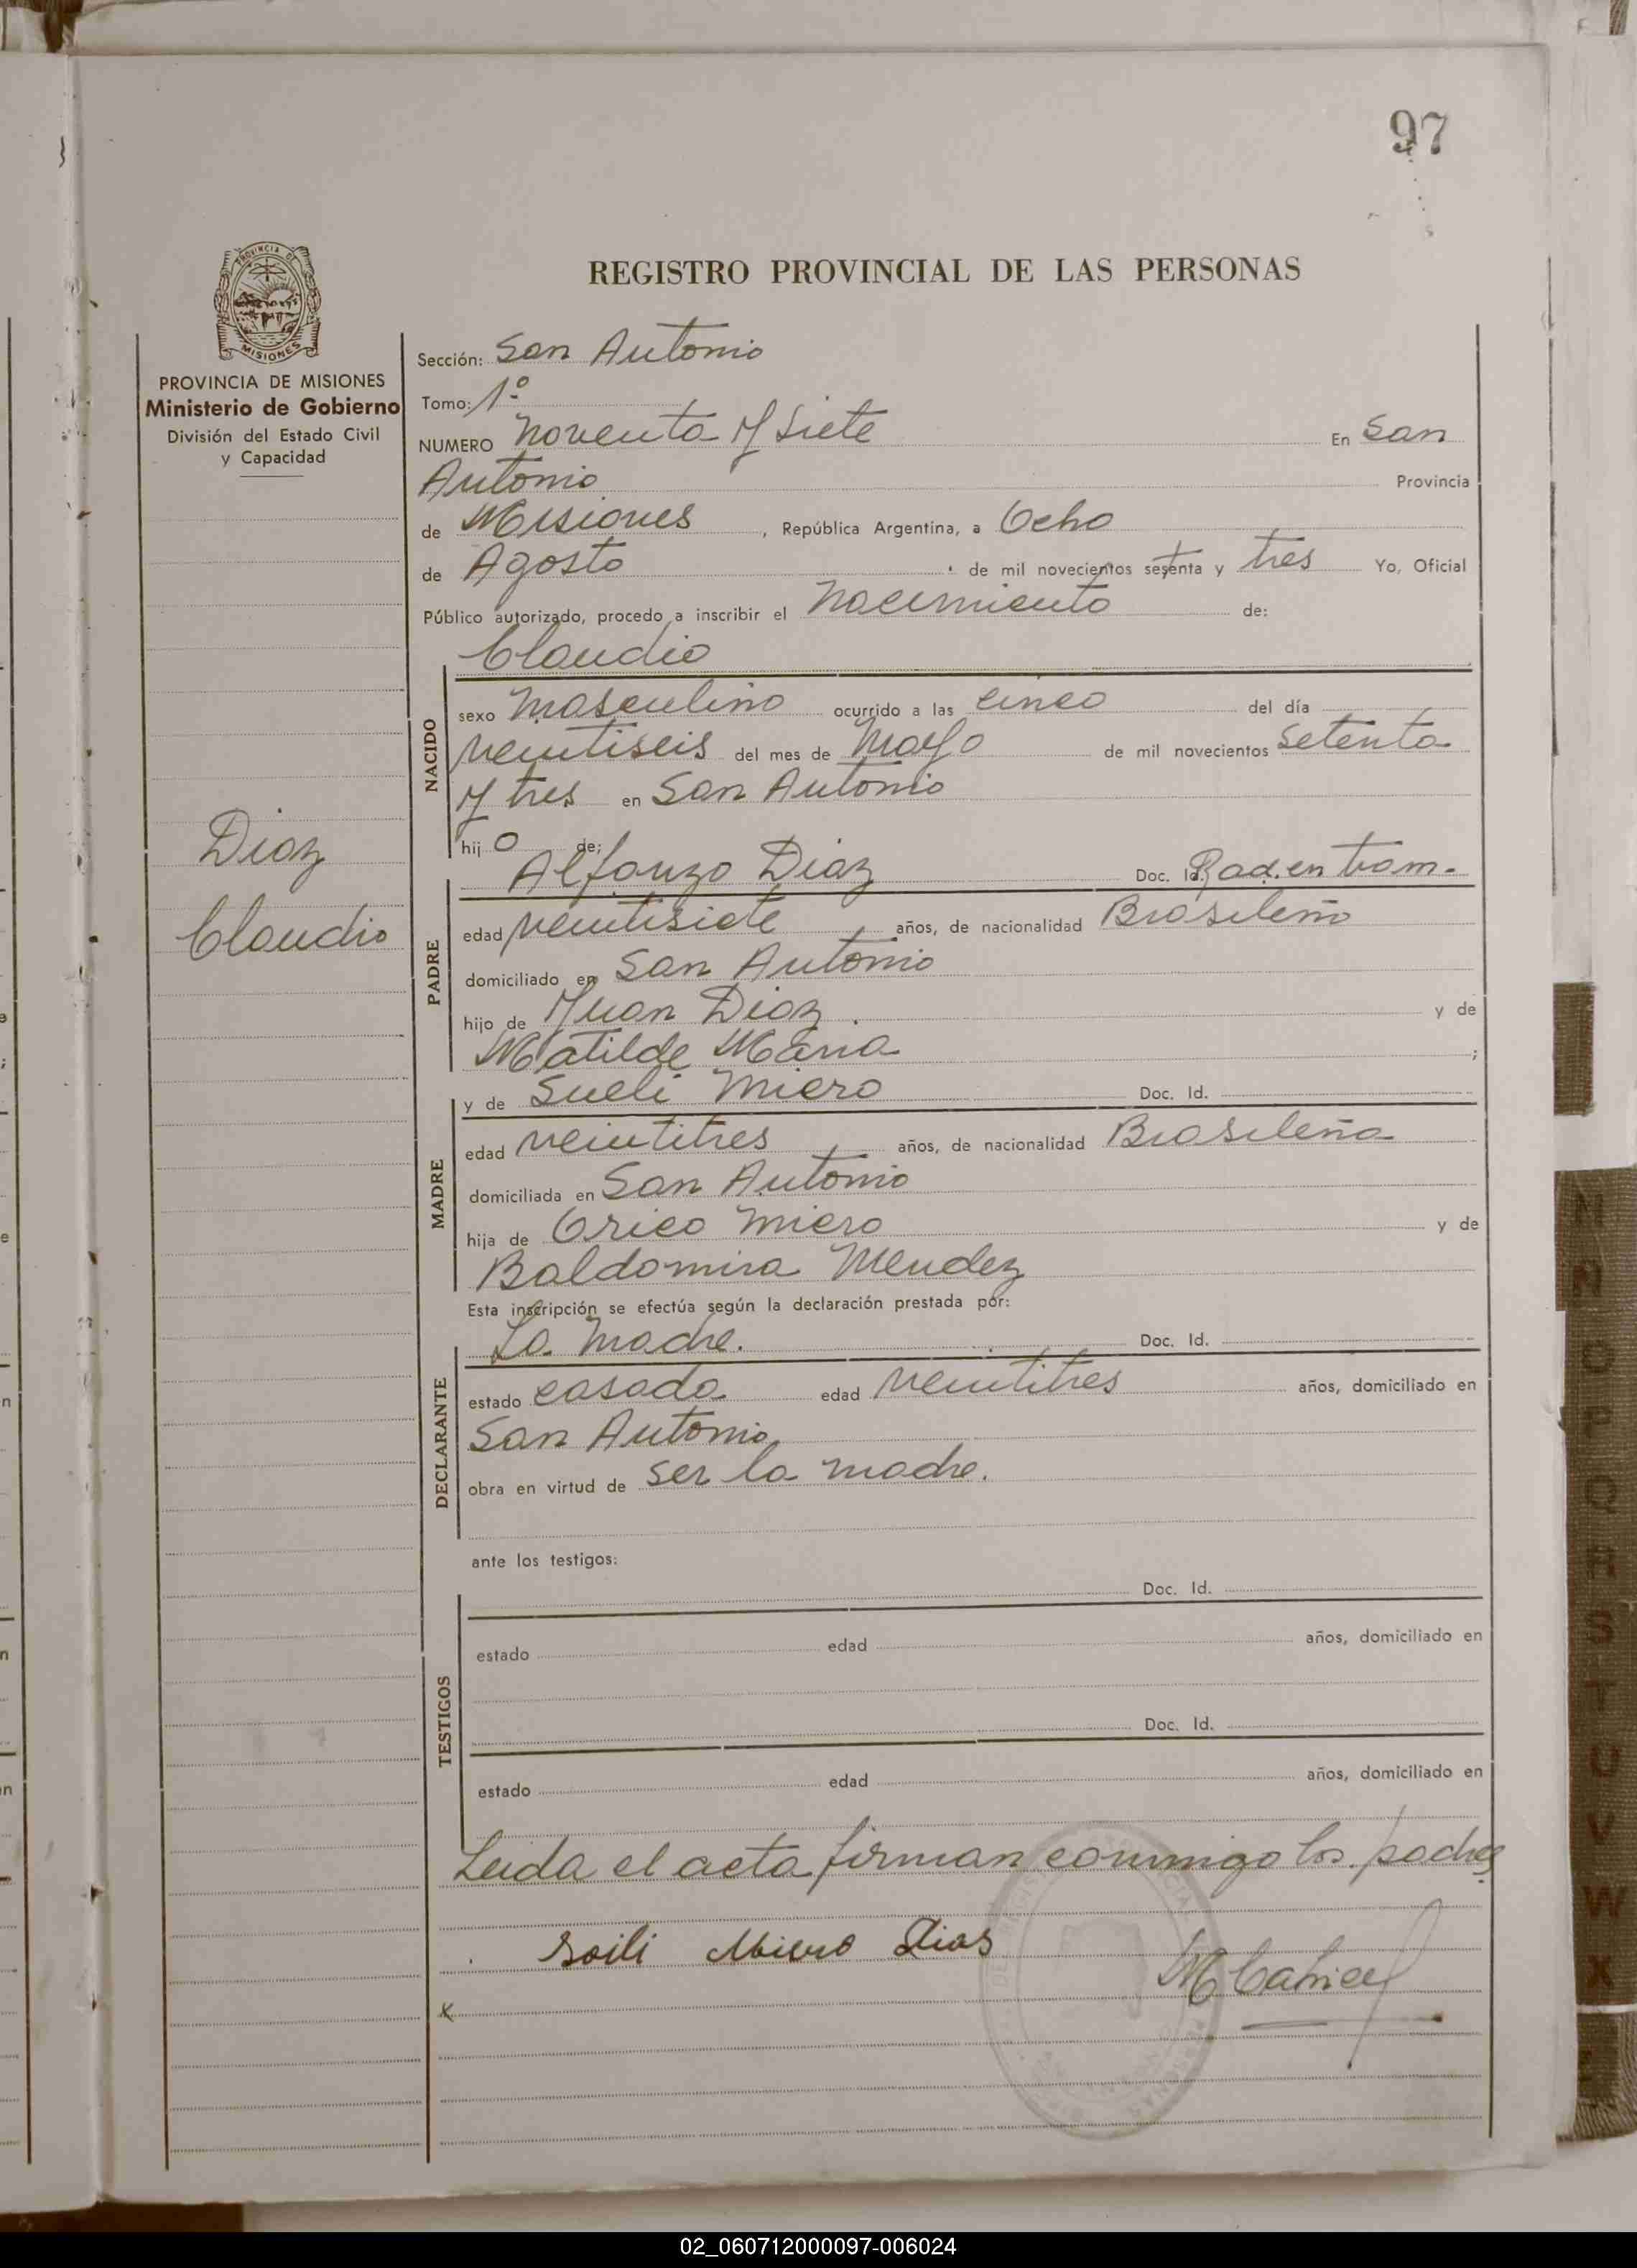 97
REGISTRO PROVINCIAL DE LAS PERSONAS
PROVINCIA DE
MISIONES
PROVINCIA DE MISIONES
Ministerio de Gobierno
División del Estado Civil
y Capacidad
Diaz
Claudio
Sección: San Antonio
Tomo: 1º
NUMERO Noventa y Siete En San
Antonio Provincia
de Misiones, República Argentina, a Ocho
de Agosto de mil novecientos setenta y tres Yo, Oficial
Público autorizado, procedo a inscribir el Nacimiento de:
Claudio
NACIDO
sexo Masculino ocurrido a las cinco del día
veintiseis del mes de Mayo de mil novecientos setenta
y tres en San Antonio
hijo de:
Alfonzo Diaz Doc. Id. Rad. en tram.
PADRE
edad veintisiete años, de nacionalidad Brasileño
domiciliado en San Antonio
hijo de Juan Diaz. y de
Matilde Maria ;
y de Sueli Miero Doc. Id.
MADRE
edad veintitres años, de nacionalidad Brasileña
domiciliada en San Antonio
hija de Orico Miero y de
Baldomira Mendez
Esta inscripción se efectúa según la declaración prestada por:
La Madre. Doc. Id.
DECLARANTE
estado casada edad veintitres años, domiciliado en
San Antonio
obra en virtud de ser la madre.
ante los testigos:
Doc. Id.
TESTIGOS
estado edad años, domiciliado en
Doc. Id.
estado edad años, domiciliado en
Leida el acta firman conmigo los padres
Soili Miero Dias
x
M N O P Q R S T U V W X
02_060712000097-006024